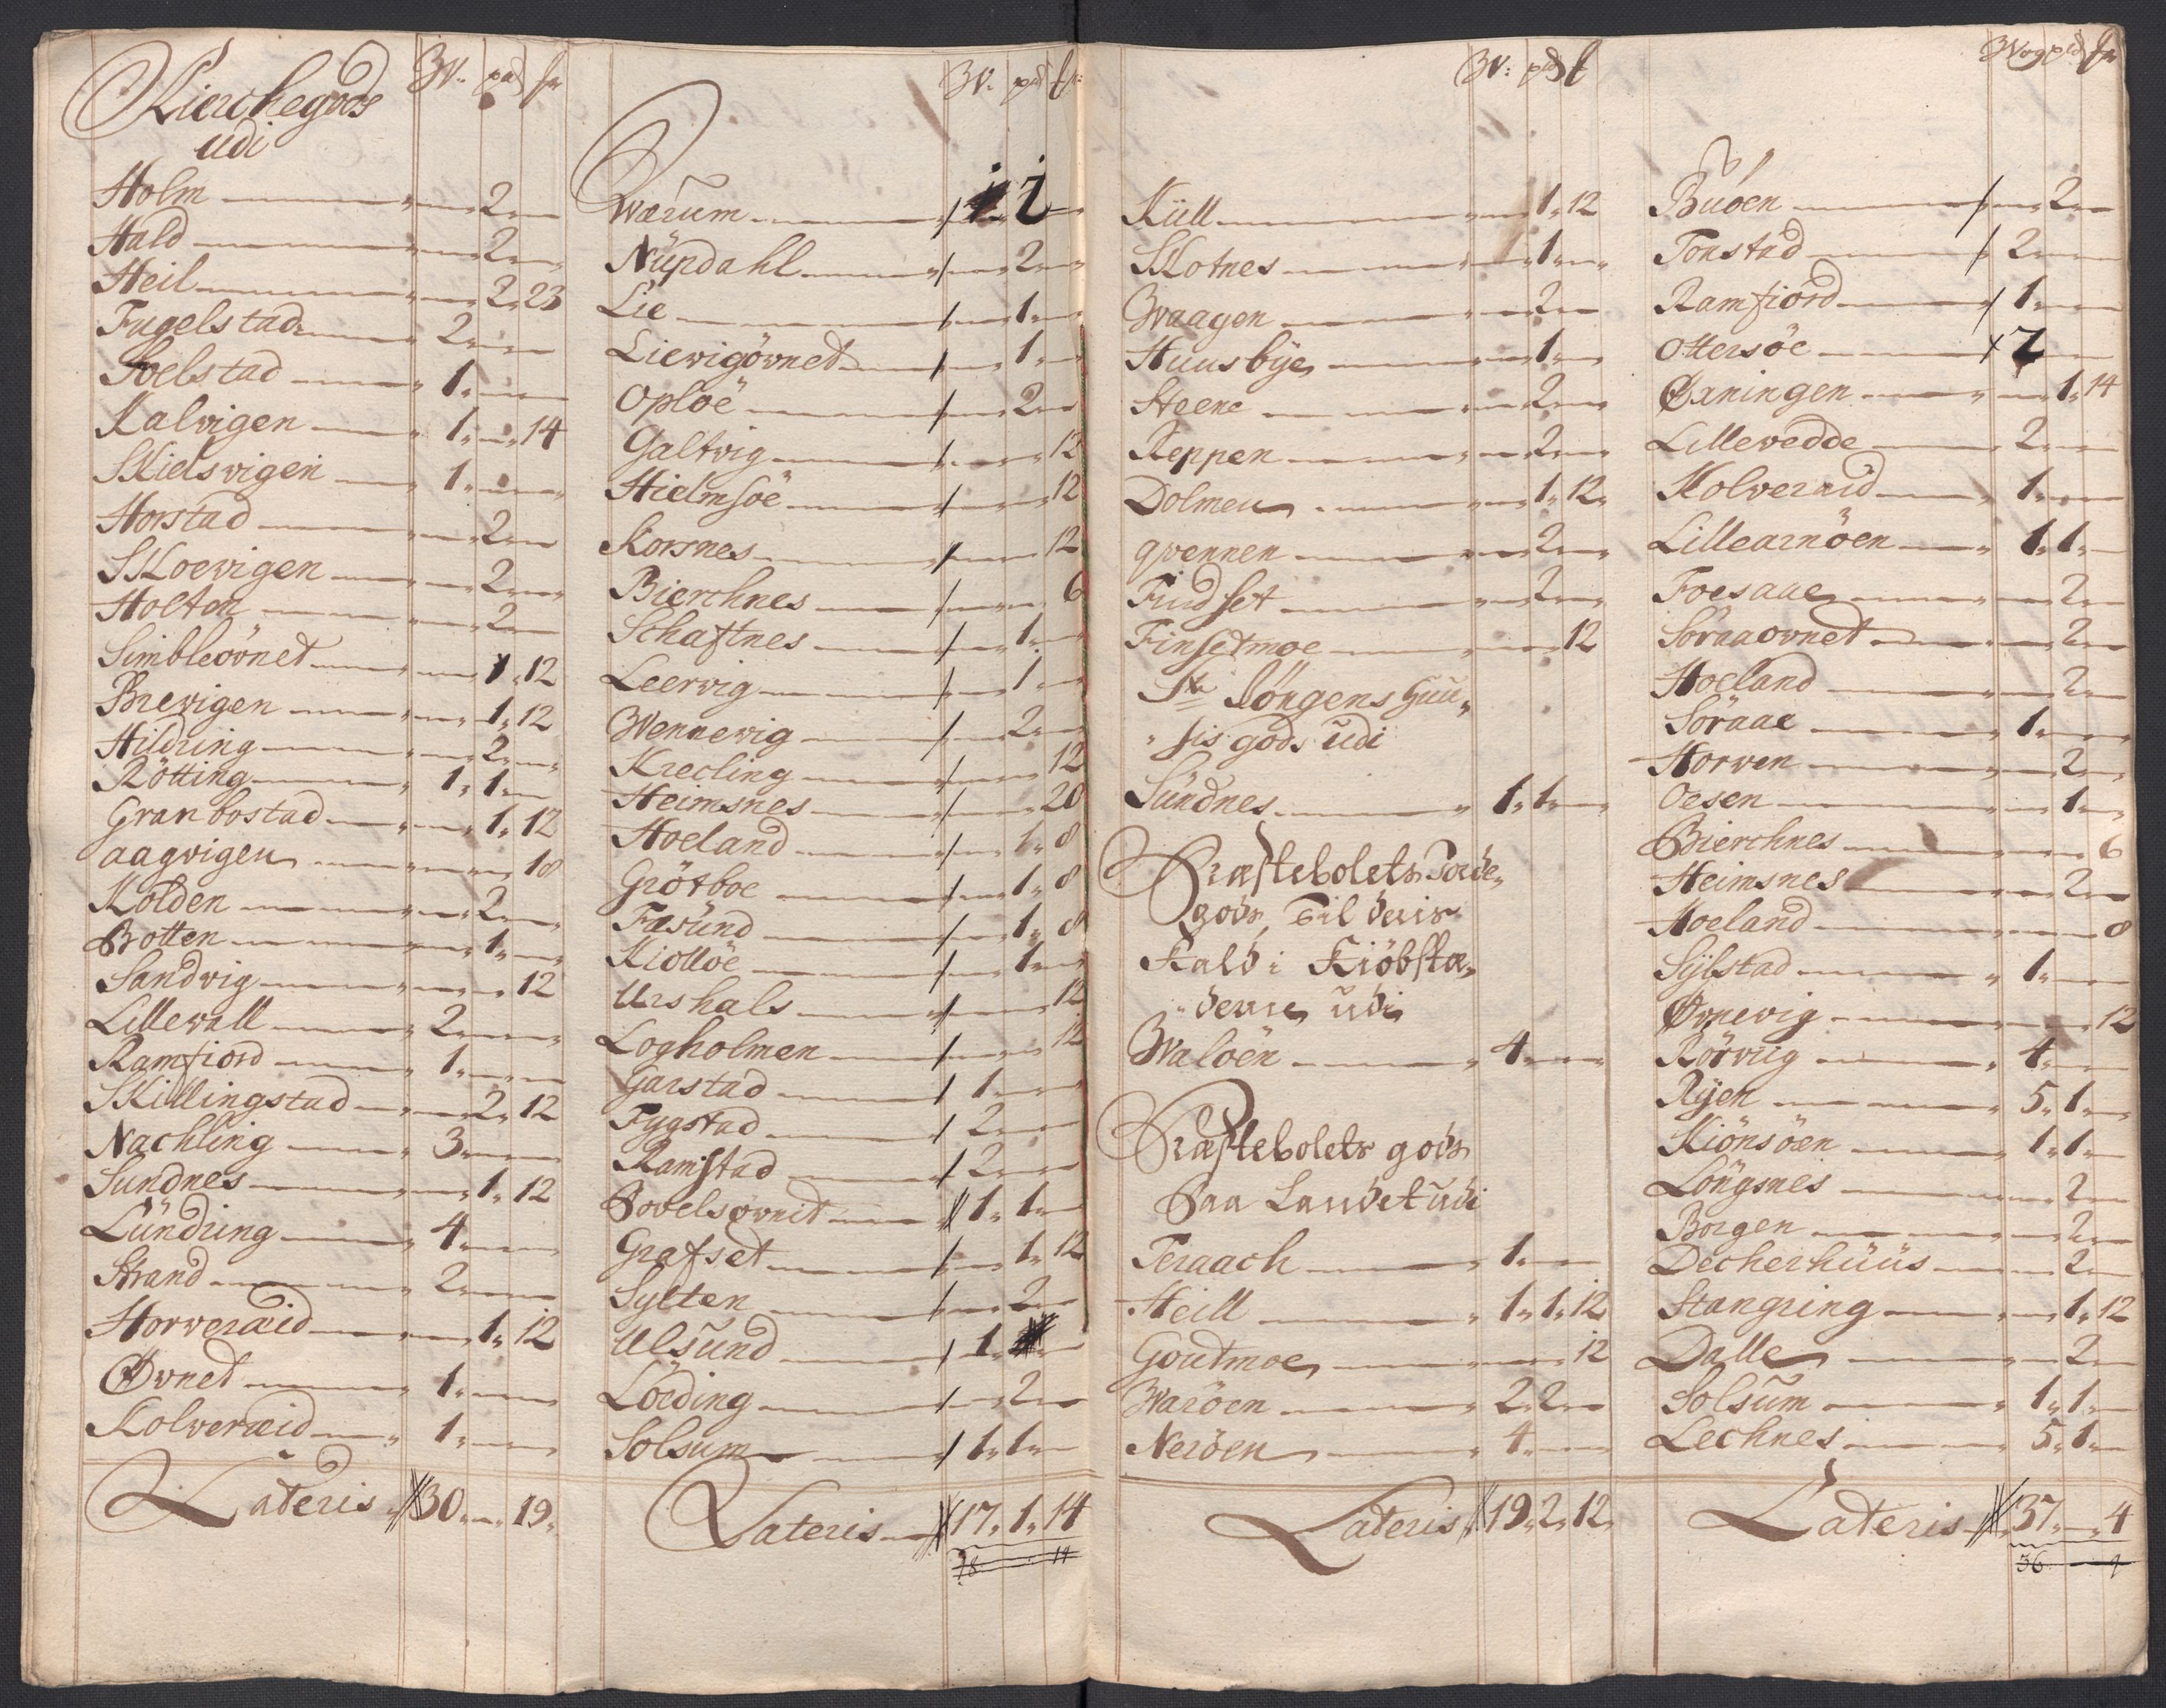 Kierchegods W. pd fr
udi
Holm 2
Hald 2
Heil 2 23
Fugelstad 2
Foelstad 1
Kalvigen 1 14
Skielsvigen 1
Horstad 2
Skoevigen 2
Holten 2
Simbleövnet 1 12
Brevigen 1 12
Hildring 2
Rötting 1 1
Granbostad 1 12
aagvigen 18
Kolden 2
Botten 1
Sandvig 12
Lillevall 2
Ramfiord 1
Skillingstad 2 12
Nachling 3
Sundnes 1 12
Lündring 4
Strand 2
Horveræid 1 12
Øvnet 1
Kolveræid 1
Lateris 30 19
W. pd
Wærum 1 1
Nüpdahl 2
Lie 1
Lievigövnet 1
Oploë 2
Galtvig 12
Hielmsöe 12
Korsnes 12
Bierchnes 6
Schaftnes 1
Leervig 1
Wennevig 2
Krecling 12
Heimsnes 20
Hoeland 1 8
Grötboe 1 8
Fæsünd 1 8
Kiollöe 1
Urshals 12
Logholmen 12
Garstad 1
Fygstad 2
Ramstad 2
Bovelsøvnit 1 1
Grafset 1 12
Sylten 2
Ulsünd 1
Löeding 2
Solsum 1 1
Lateris 17 1 14
18 14
W: pd
Küll 1 12
Skotnes 1
Waagen 2
Huusbÿe 1
Steene 2
Reppen 2
Dolmen 1 12
qvennen 2
Fiudset 2
Finsetmoe 12
Ste Jöngens Huu
sis gods udi
Sündnes 1 1
Præstebolets Jorde
gods, Til deris
Kald i Kiöbstæ
derne udi
Walöen 4
Præstebolets gods
Paa Landet udi
Teraach 1
Heill 1 1 12
Goutmoe 12
Waröen 2 2
Neröen 4
Lateris 19 2 12
Wog pd fr
Buöen 2
Tonstad 2
Ramfiord 1
Ottersöe 2
Øxningen 1 14
Lillevedde 2
Kolveraid 1
Lillearnöen 1 1
Foesaae 2
Soraaovnet 2
Hoeland 2
Söraae 1
Horven 2
Oesen 1
Bierchnes 6
Heimsnes 2
Hoeland 8
Sÿlstad 1
Øvnevig 12
Rörviig 4
Rÿen 5 1
Kiönsöen 1 1
Löngsnes 2
Borgen 2
Decherhüüs 2
Stangring 1 12
Dalle 2
Solsüm 1 1
Lechnes 5 1
Lateris 37 4
36